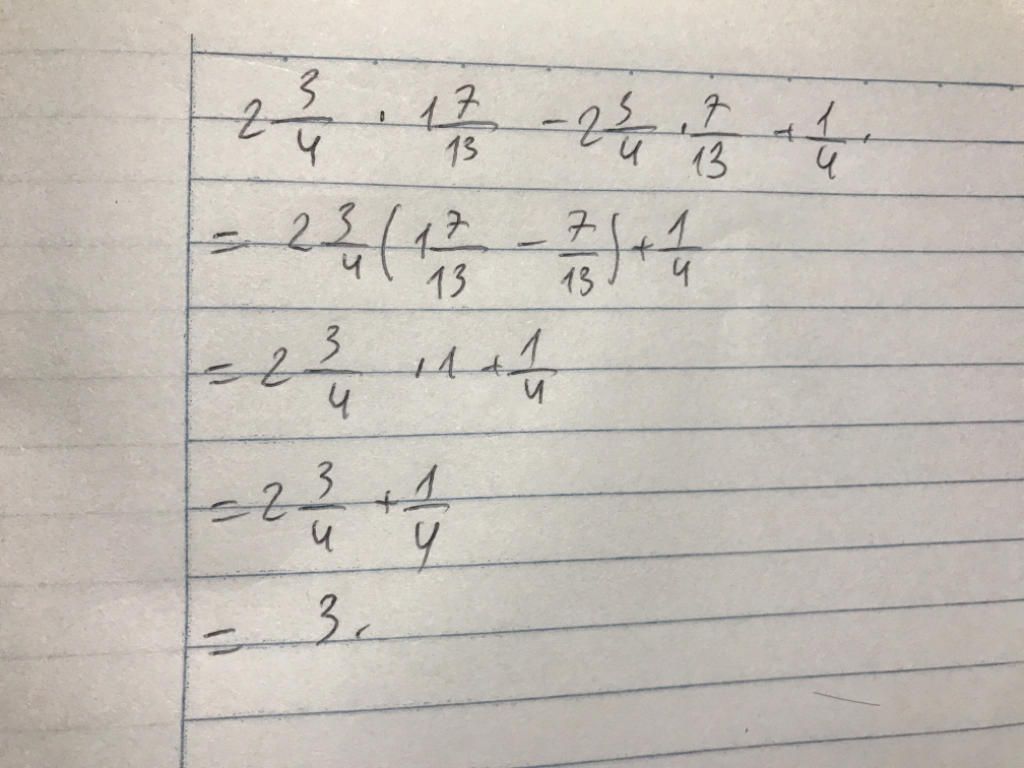 2 3/4 · 1 7/13 - 2 3/4 · 7/13 + 1/4 .
= 2 3/4 (1 7/13 - 7/13) + 1/4
= 2 3/4 · 1 + 1/4
= 2 3/4 + 1/4
= 3.